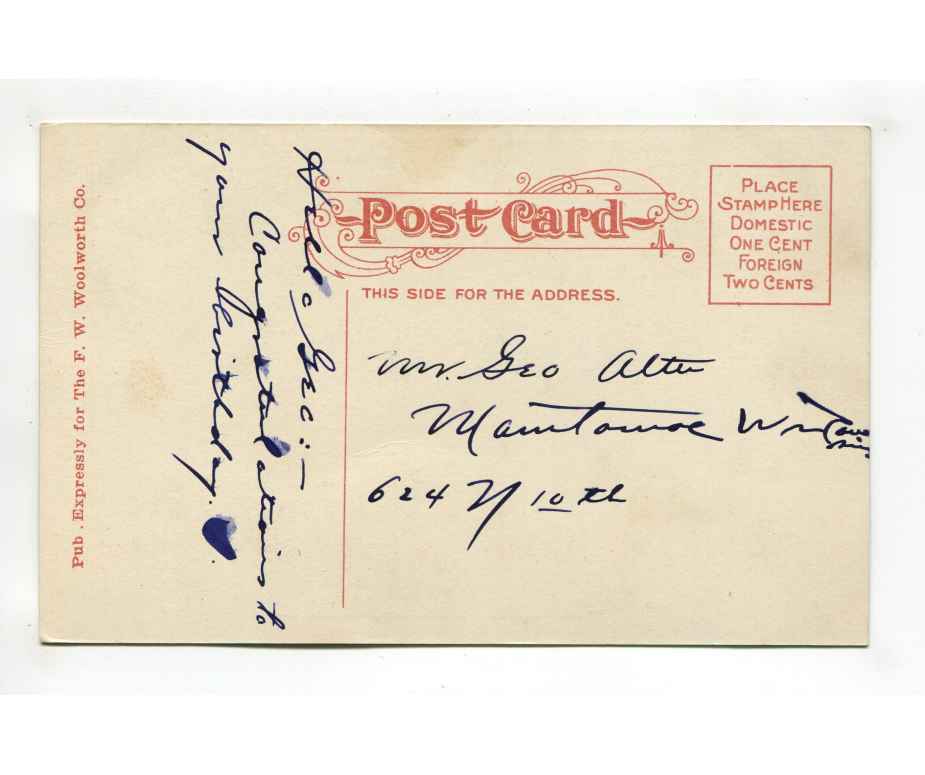 Pub. Expressly for The F. W. Woolworth Co.
Hello Geo:—
Congratulations to
your birthday.
Post Card
THIS SIDE FOR THE ADDRESS.
PLACE
STAMP HERE
DOMESTIC
ONE CENT
FOREIGN
TWO CENTS
Mr. Geo Alter
Manitowoc
624 N 10th